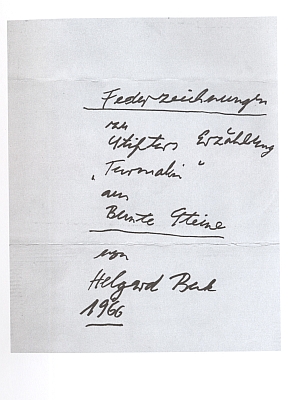 Federzeichnungen
zu
Stifters Erzählung
„Turmalin“
aus
Bunte Steine
von
Helgard
1966